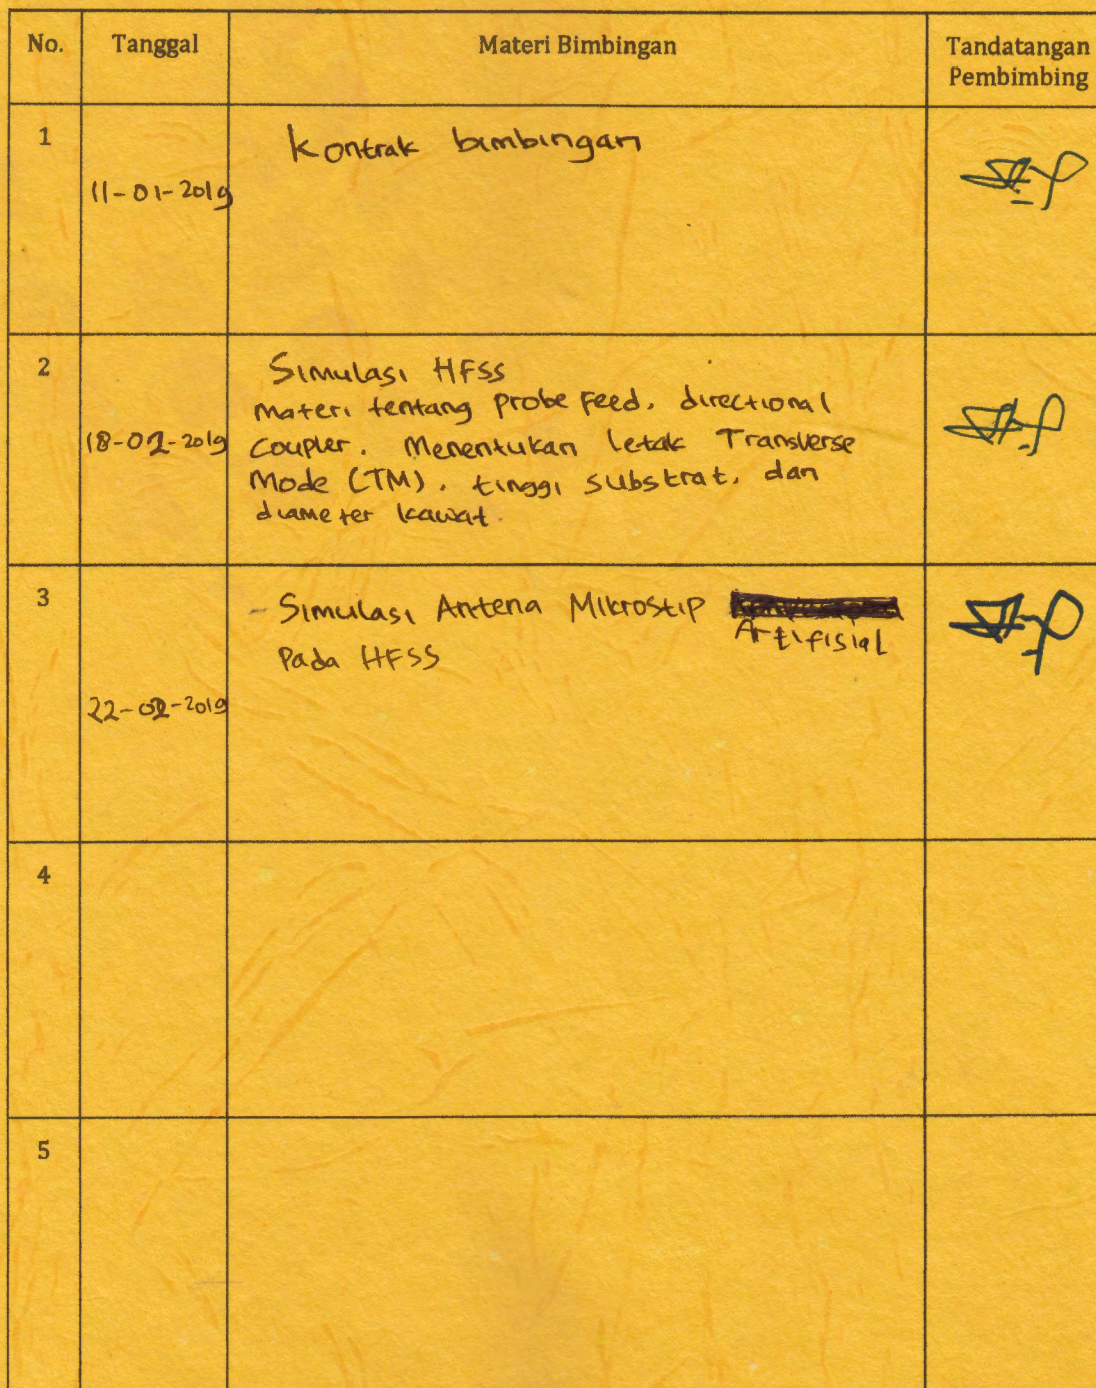 No. Tanggal Materi Bimbingan Tandatangan
Pembimbing
1
Kontrak bimbingan
11-01-2019
2
Simulasi HFSS
materi tentang probe feed, directional
18-02-2019 Coupler. Menentukan letak Transverse
Mode (TM), tinggi substrat, dan
diameter kawat.
3
- Simulasi Antena Mikrostip
Artifisial
Pada HFSS
22-02-2019
4
5